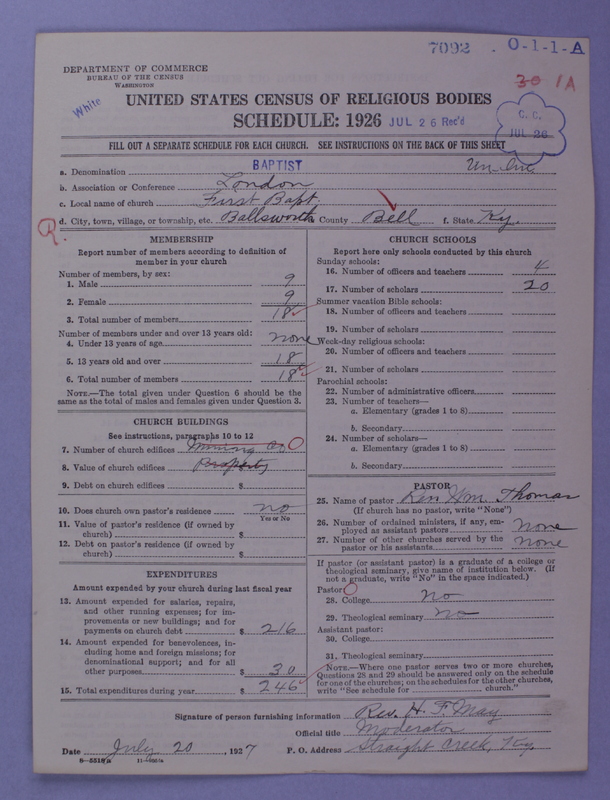 7092 . O-1-1-A
DEPARTMENT OF COMMERCE
BUREAU OF THE CENSUS
WASHINGTON
30 1A
White
UNITED STATES CENSUS OF RELIGIOUS BODIES
SCHEDULE: 1926 JUL 26 Rec'd
JUL 26
FILL OUT A SEPARATE SCHEDULE FOR EACH CHURCH. SEE INSTRUCTIONS ON THE BACK OF THIS SHEET
a. Denomination BAPTIST
b. Association or Conference London
c. Local name of church First Bapt.
d. City, town, village, or township, etc. Ballsworth County Bell f. State Ky.
MEMBERSHIP
Report number of members according to definition of
member in your church
Number of members, by sex:
1. Male 9
2. Female 9
3. Total number of members 18
Number of members under and over 13 years old:
4. Under 13 years of age none
5. 13 years old and over 18
6. Total number of members 18
NOTE.—The total given under Question 6 should be
the same as the total of males and females given under Question 3.
CHURCH BUILDINGS
See instructions, paragraphs 10 to 12
7. Number of church edifices Mining Co. 0
8. Value of church edifices Property
9. Debt on church edifices $
10. Does church own pastor's residence no
Yes or No
11. Value of pastor's residence (if owned by
church) $
12. Debt on pastor's residence (if owned by
church) $
EXPENDITURES
Amount expended by your church during last fiscal year
13. Amount expended for salaries, repairs,
and other running expenses; for im-
provements or new buildings; and for
payments on church debt $ 216
14. Amount expended for benevolences, in-
cluding home and foreign missions; for
denominational support; and for all
other purposes $ 30
15. Total expenditures during year $ 246
CHURCH SCHOOLS
Report here only schools conducted by this church
Sunday schools:
16. Number of officers and teachers 4
17. Number of scholars 20
Summer vacation Bible schools:
18. Number of officers and teachers
19. Number of scholars
Week-day religious schools:
20. Number of officers and teachers
21. Number of scholars
Parochial schools:
22. Number of administrative officers
23. Number of teachers—
a. Elementary (grades 1 to 8)
b. Secondary
24. Number of scholars—
a. Elementary (grades 1 to 8)
b. Secondary
PASTOR
25. Name of pastor Rev. Wm. Thomas
(If church has no pastor, write "None")
26. Number of ordained ministers, if any, em-
ployed as assistant pastors None
27. Number of other churches served by the
pastor or his assistants None
If pastor (or assistant pastor) is a graduate of a college or
theological seminary, give name of institution below. (If
not a graduate, write "No" in the space indicated.)
Pastor:
28. College No
29. Theological seminary No
Assistant pastor:
30. College
31. Theological seminary
NOTE.—Where one pastor serves two or more churches,
Questions 28 and 29 should be answered only on the schedule
for one of the churches; on the schedules for the other churches,
write "See schedule for church."
Signature of person furnishing information Rev. H. F. May
Official title Moderator
Date July 20, 1927 P. O. Address Straight Creek, Ky.